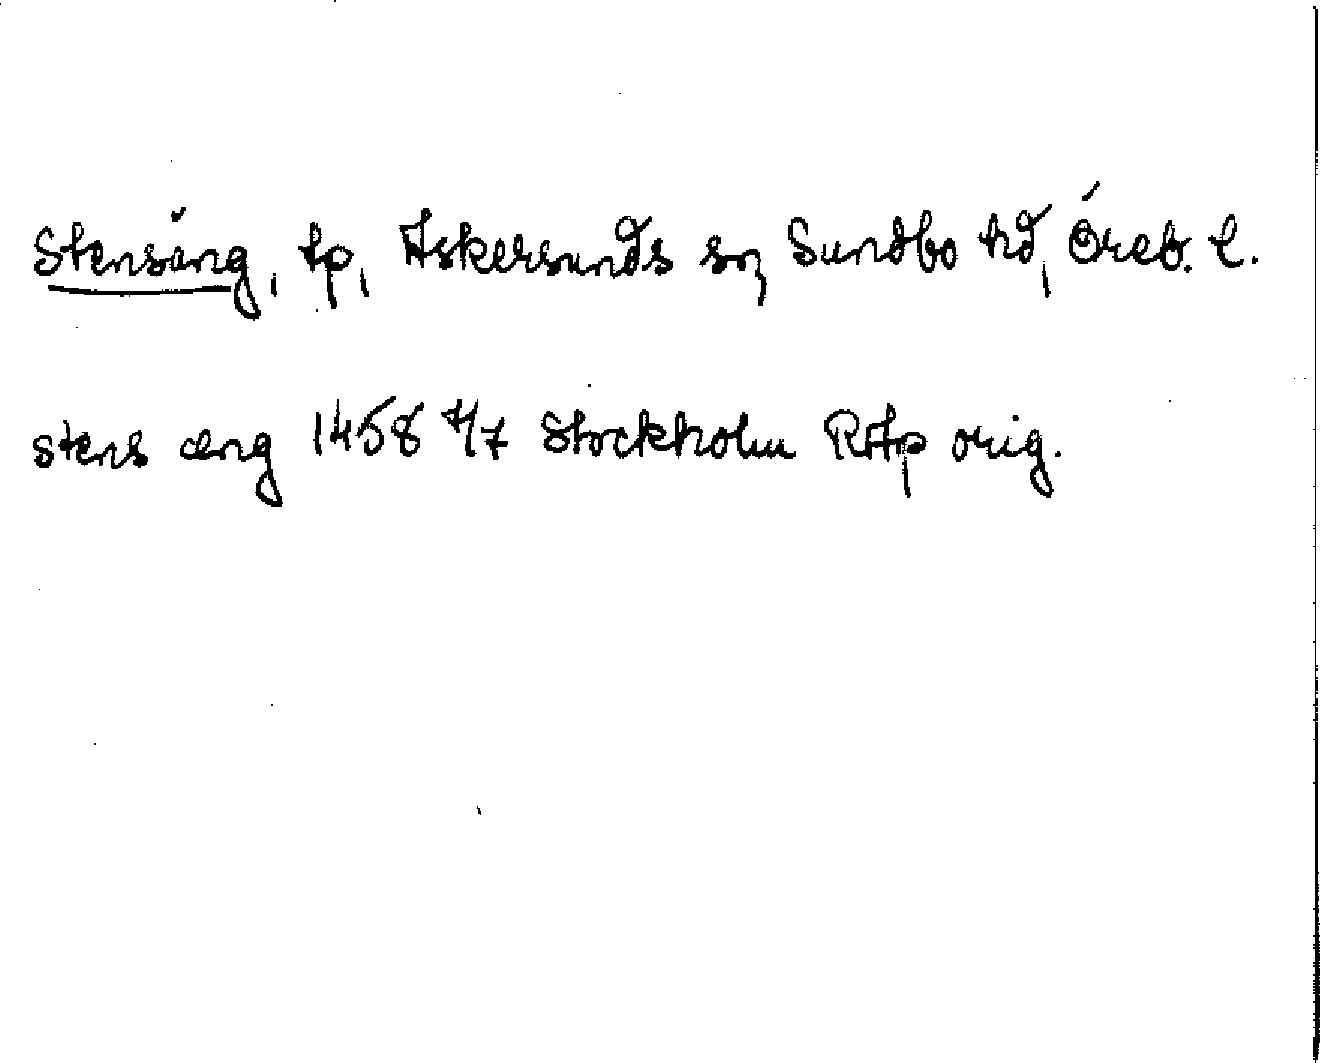 Stensäng, tp, Askersunds sn, Sundbo hd, Öreb. l.
stens æng 1458 4/7 Stockholm RAp orig.